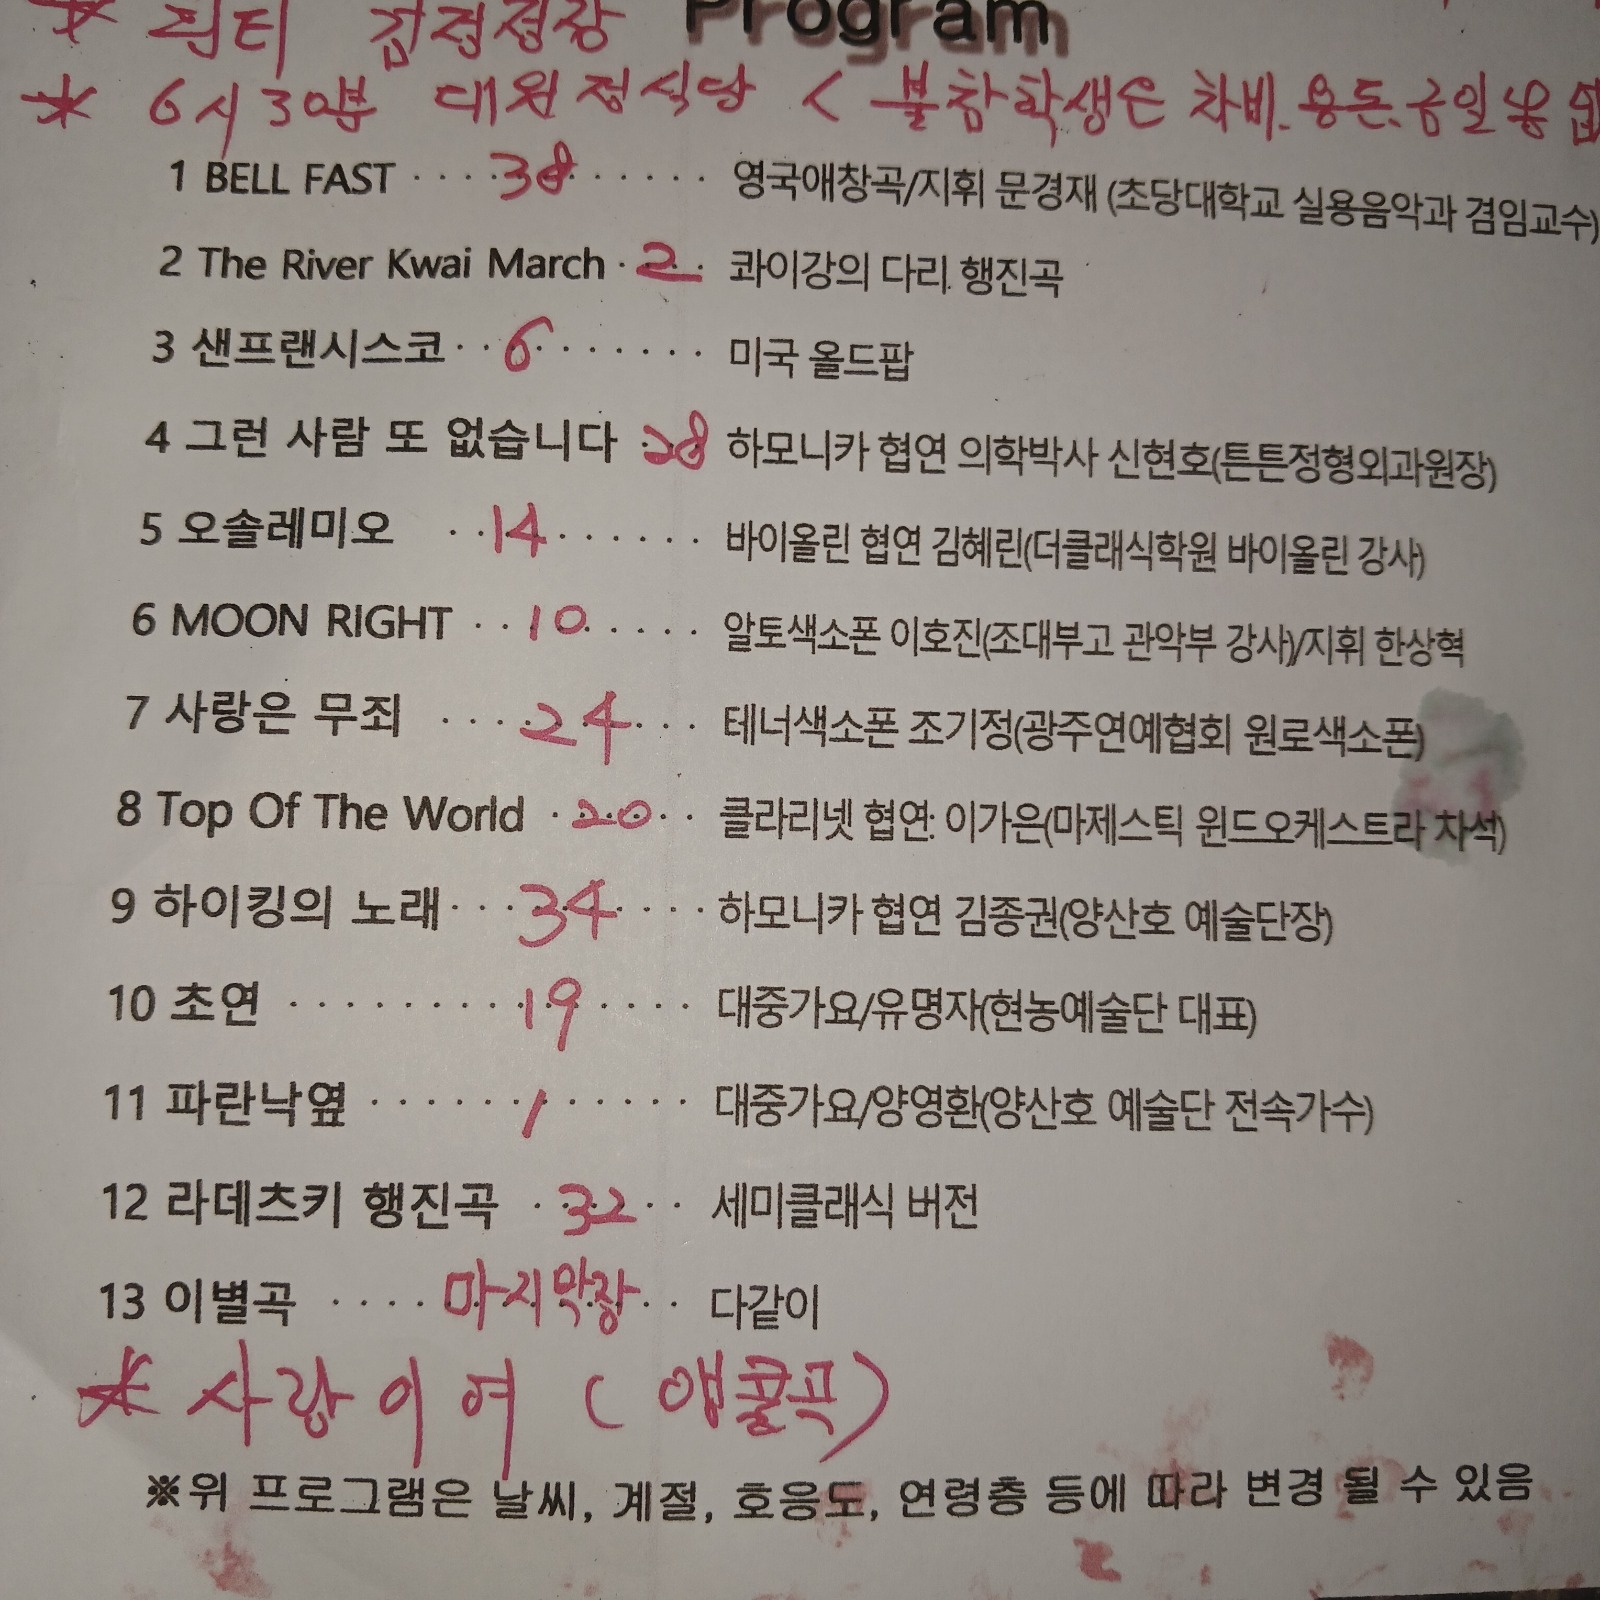 * 흰티 검정정장 Program
* 6시30분 대원정식당 < 불참학생은 차비.용돈.금일봉
1 BELL FAST ····38······ 영국애창곡/지휘 문경재 (초당대학교 실용음악과 겸임교수)
2 The River Kwai March · 2 · 콰이강의 다리 행진곡
3 샌프랜시스코 ·· 6 ······· 미국 올드팝
4 그런 사람 또 없습니다 28 하모니카 협연 의학박사 신현호(튼튼정형외과원장)
5 오솔레미오 ·· 14 ······· 바이올린 협연 김혜린(더클래식학원 바이올린 강사)
6 MOON RIGHT ·· 10 ····· 알토색소폰 이호진(조대부고 관악부 강사)/지휘 한상혁
7 사랑은 무죄 ···· 24 ··· 테너색소폰 조기정(광주연예협회 원로색소폰)
8 Top Of The World · 20 ·· 클라리넷 협연: 이가은(마제스틱 윈드오케스트라 차석)
9 하이킹의 노래 ··· 34 ···· 하모니카 협연 김종권(양산호 예술단장)
10 초연 ········· 19 ···· 대중가요/유명자(현농예술단 대표)
11 파란낙엽 ······ 1 ······ 대중가요/양영환(양산호 예술단 전속가수)
12 라데츠키 행진곡 · 32 ·· 세미클래식 버전
13 이별곡 ···· 마지막장 ·· 다같이
* 사랑이여 (앵콜곡)
※위 프로그램은 날씨, 계절, 호응도, 연령층 등에 따라 변경 될 수 있음